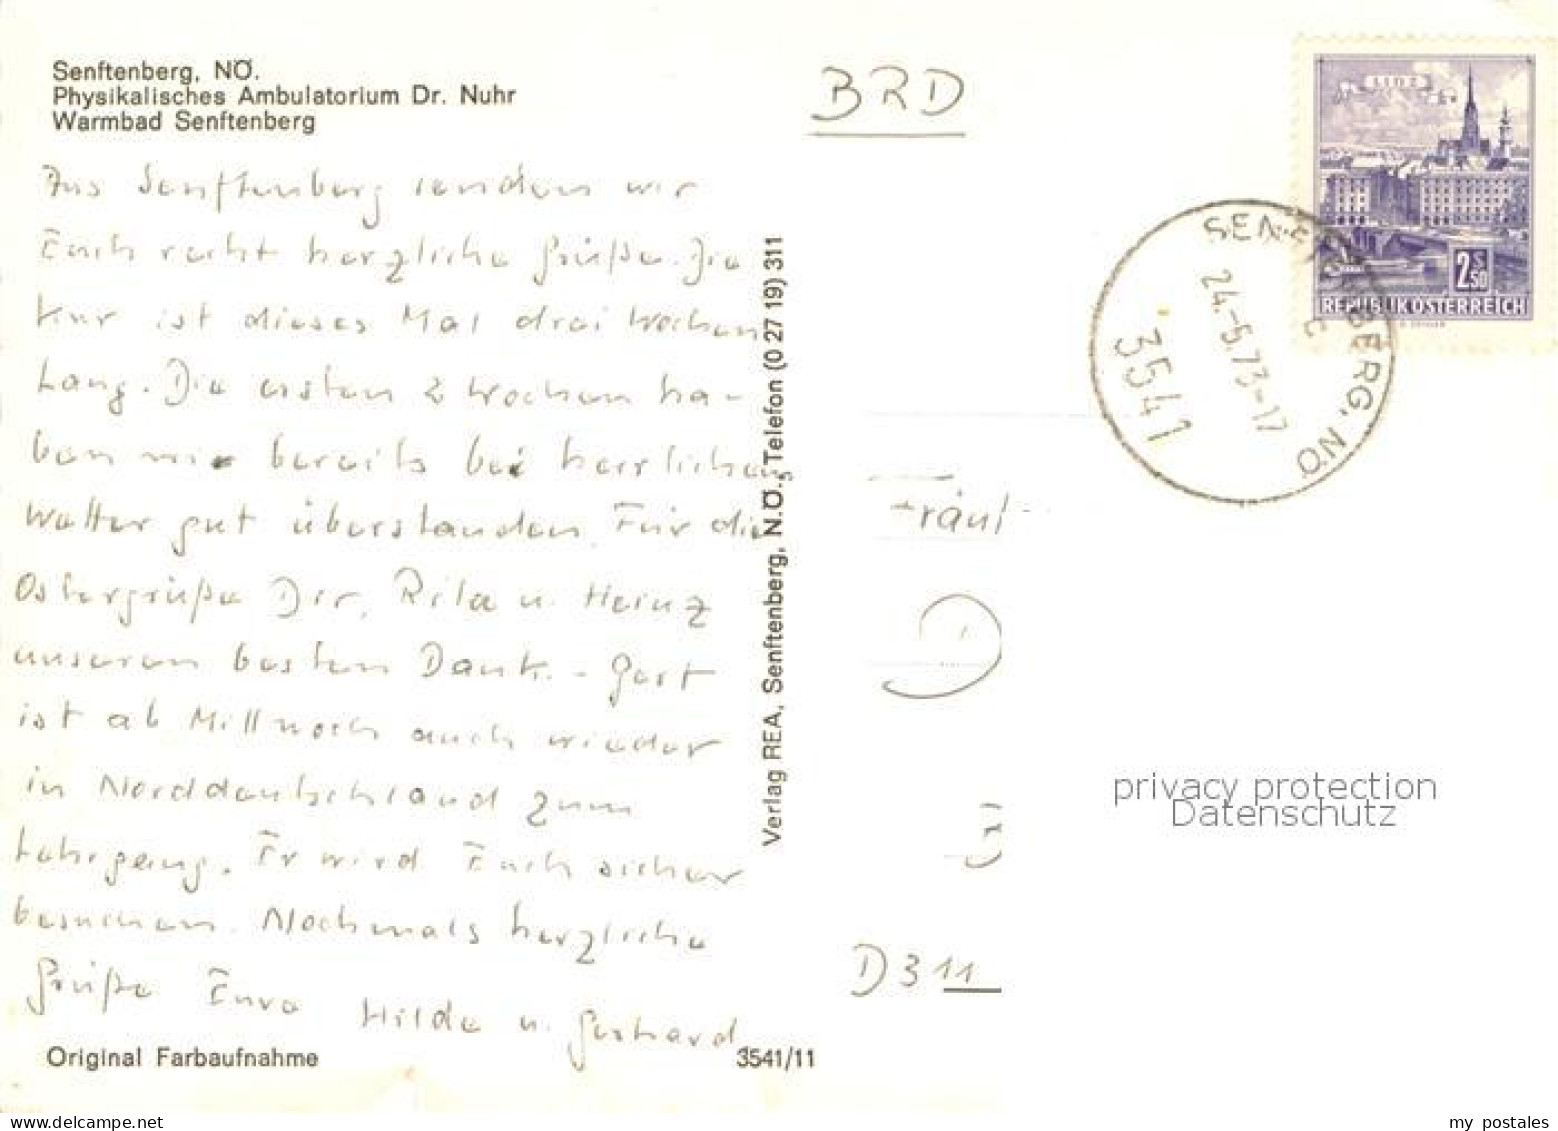 Senftenberg, NÖ.
Physikalisches Ambulatorium Dr. Nuhr
Warmbad Senftenberg
BRD
LINZ
2 S 50
REPUBLIK ÖSTERREICH
SENFTENBERG, NÖ
24.-5.73-17
3541
c
Aus Senftenberg senden wir
Euch recht herzliche Grüße. Die
Kur ist dieses Mal drei Wochen
lang. Die ersten 2 Wochen ha-
ben wir bereits bei herrlichem
Wetter gut überstanden. Für die
Ostergrüße Dir, Rita u. Heinz
unseren besten Dank. - Gert
ist ab Mittwoch auch wieder
in Norddeutschland zum
Lehrgang. Er wird Euch sicher
besuchen. Nochmals herzliche
Grüße Eure Hilde u. Gerhard
Verlag REA, Senftenberg, N.Ö., Telefon (0 27 19) 311
Fräul
D
D 311
privacy protection
Datenschutz
Original Farbaufnahme
3541/11
delcampe.net
my_postales